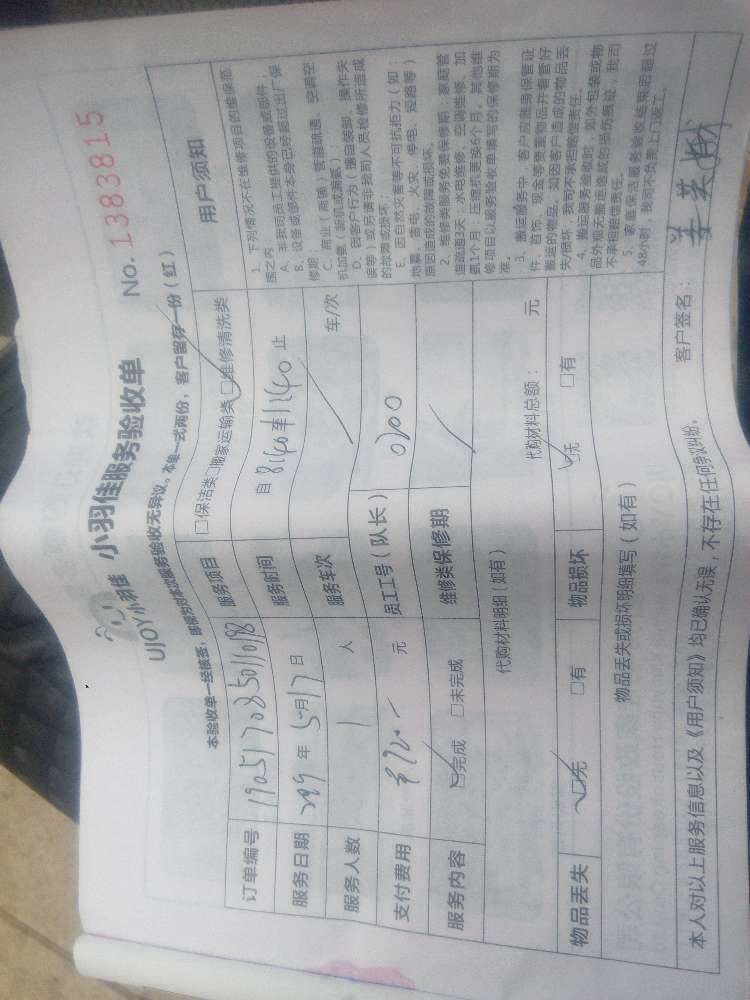 UJOY小雅 小羽佳服务验收单 No. 1383815
本验收单一经核签，即视为对本次服务验收无异议。本单一式两份，客户留存一份（红）
订单编号 服务项目 □保洁类□搬家运输类□维修清洗类
服务日期 年 5月17日 服务时间 自 8:40 至 1240 止
服务人数 1 人 服务车次 车/次
支付费用 元 员工工号（队长） 0200
服务内容 □完成 □未完成 维修类保修期
代购材料明细（如有） 代购材料总额： 元
物品丢失 □无 □有 物品损坏 □无 □有
物品丢失或损坏明细填写（如有）
用户须知
1、下列情况不在维修项目的维保范
围之内
A、非我司员工提供的设备或部件；
B、设备或部件本身已经超过出厂保
修期；
C、商业（商铺）管路疏通、空调空
机加氨（封机或漏氨）；
D、因客户行为（擅自装卸、操作失
误等）或另请非我司人员检修所造成
的故障或损坏；
E、因自然灾害等不可抗拒力（如：
地震、雷电、火灾、停电、短路等）
原因造成的故障或损坏。
2、维修类服务免费保修期：家庭管
道疏通3天；水电维修、空调维修、加
氨1个月；压缩机更换6个月。其他维
修项目以服务验收单填写的保修期为
准。
3、搬运服务中，客户应妥当保管证
件、首饰、现金等贵重物品并看管好
搬运的物品。如因客户造成的物品丢
失/损坏，我司不承担赔偿责任。
4、搬运服务验收时，如外包装或物
品外观无搬运造成的损伤痕迹，我司
不承担赔偿责任。
5、家庭保洁服务验收结束后超过
48小时，我司不负责上门返工。
本人对以上服务信息以及《用户须知》均已确认无误，不存在任何争议纠纷。 客户签名：